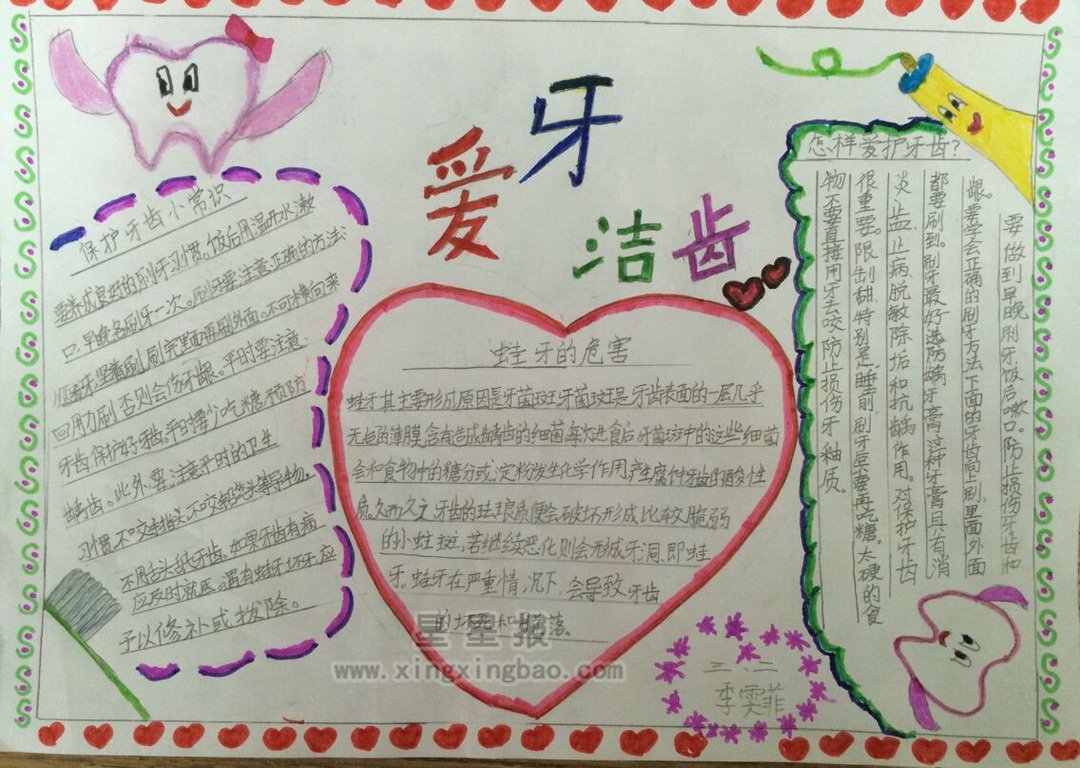 爱牙
洁齿
保护牙齿小常识
要养成良好的刷牙习惯。饭后用温开水漱
口,早晚各刷牙一次。刷牙要注意正确的方法:
刷完里面再刷外面。不可横向来
回用力刷,否则会伤牙龈。平时要注意
牙齿保护好牙齿。平时要少吃糖预防
龋齿。此外,要注意平时的卫生
习惯,不咬指头、不咬铅笔头等导物,
不用舌头舔牙齿。如果牙齿有病,
应及时就医。遇有蛀牙坏牙,应
予以修补或拔除。
蛀牙的危害
蛀牙其主要形成原因是牙菌斑牙菌斑是牙齿表面的一层几乎
无色的薄膜,含有造成龋齿的细菌每次进食后,牙菌斑中的这些细菌
会和食物中的糖分或淀粉发生化学作用,产生腐蚀牙齿的酸性
质,久而久之,牙齿的珐琅质便会破坏形成比较脆弱
的小蛀斑,若继续恶化则会形成牙洞,即蛀
牙。蛀牙在严重情况下,会导致牙齿
的坏死和脱落。
怎样爱护牙齿?
要做到早晚刷牙饭后嗽口。防止损伤牙齿和
龈。要学会正确的刷牙方法下面的牙齿向上刷,里面外面
都要刷到。刷牙最好选防龋牙膏,这种牙膏具有消
炎止血、止病、脱敏除垢和抗龋作用。对保护牙齿
很重要。限制甜特别是睡前,刷牙后不要再吃糖。太硬的食
物不要直接用牙去咬,防止损伤牙釉质。
三.二
李雯菲
星星报
www.xingxingbao.com